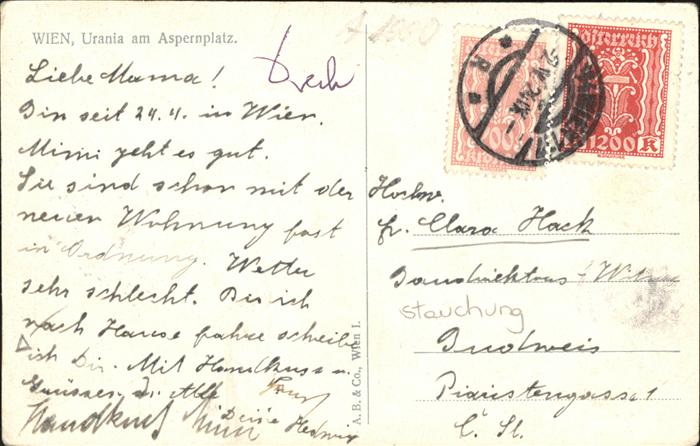 WIEN, Urania am Aspernplatz.
Liebe Mama!
Bin seit 24. 4. in Wien.
Mimi geht es gut.
Sie sind schon mit der
neuen Wohnung fast
in Ordnung. Wetter
sehr schlecht. Bis ich
nach Hause fahre schreibe
ich Dir. Mit Handkuss u.
Grüssen an Alle
Deine Hedwig
Handkuss Mimi
A. B. & Co., Wien I.
Österreich
1200 K
WIEN
Hochw.
Fr. Clara Hack
Baudirektors-Witwe
stauchung
Budweis
Piaristengasse 1
Č. Sl.